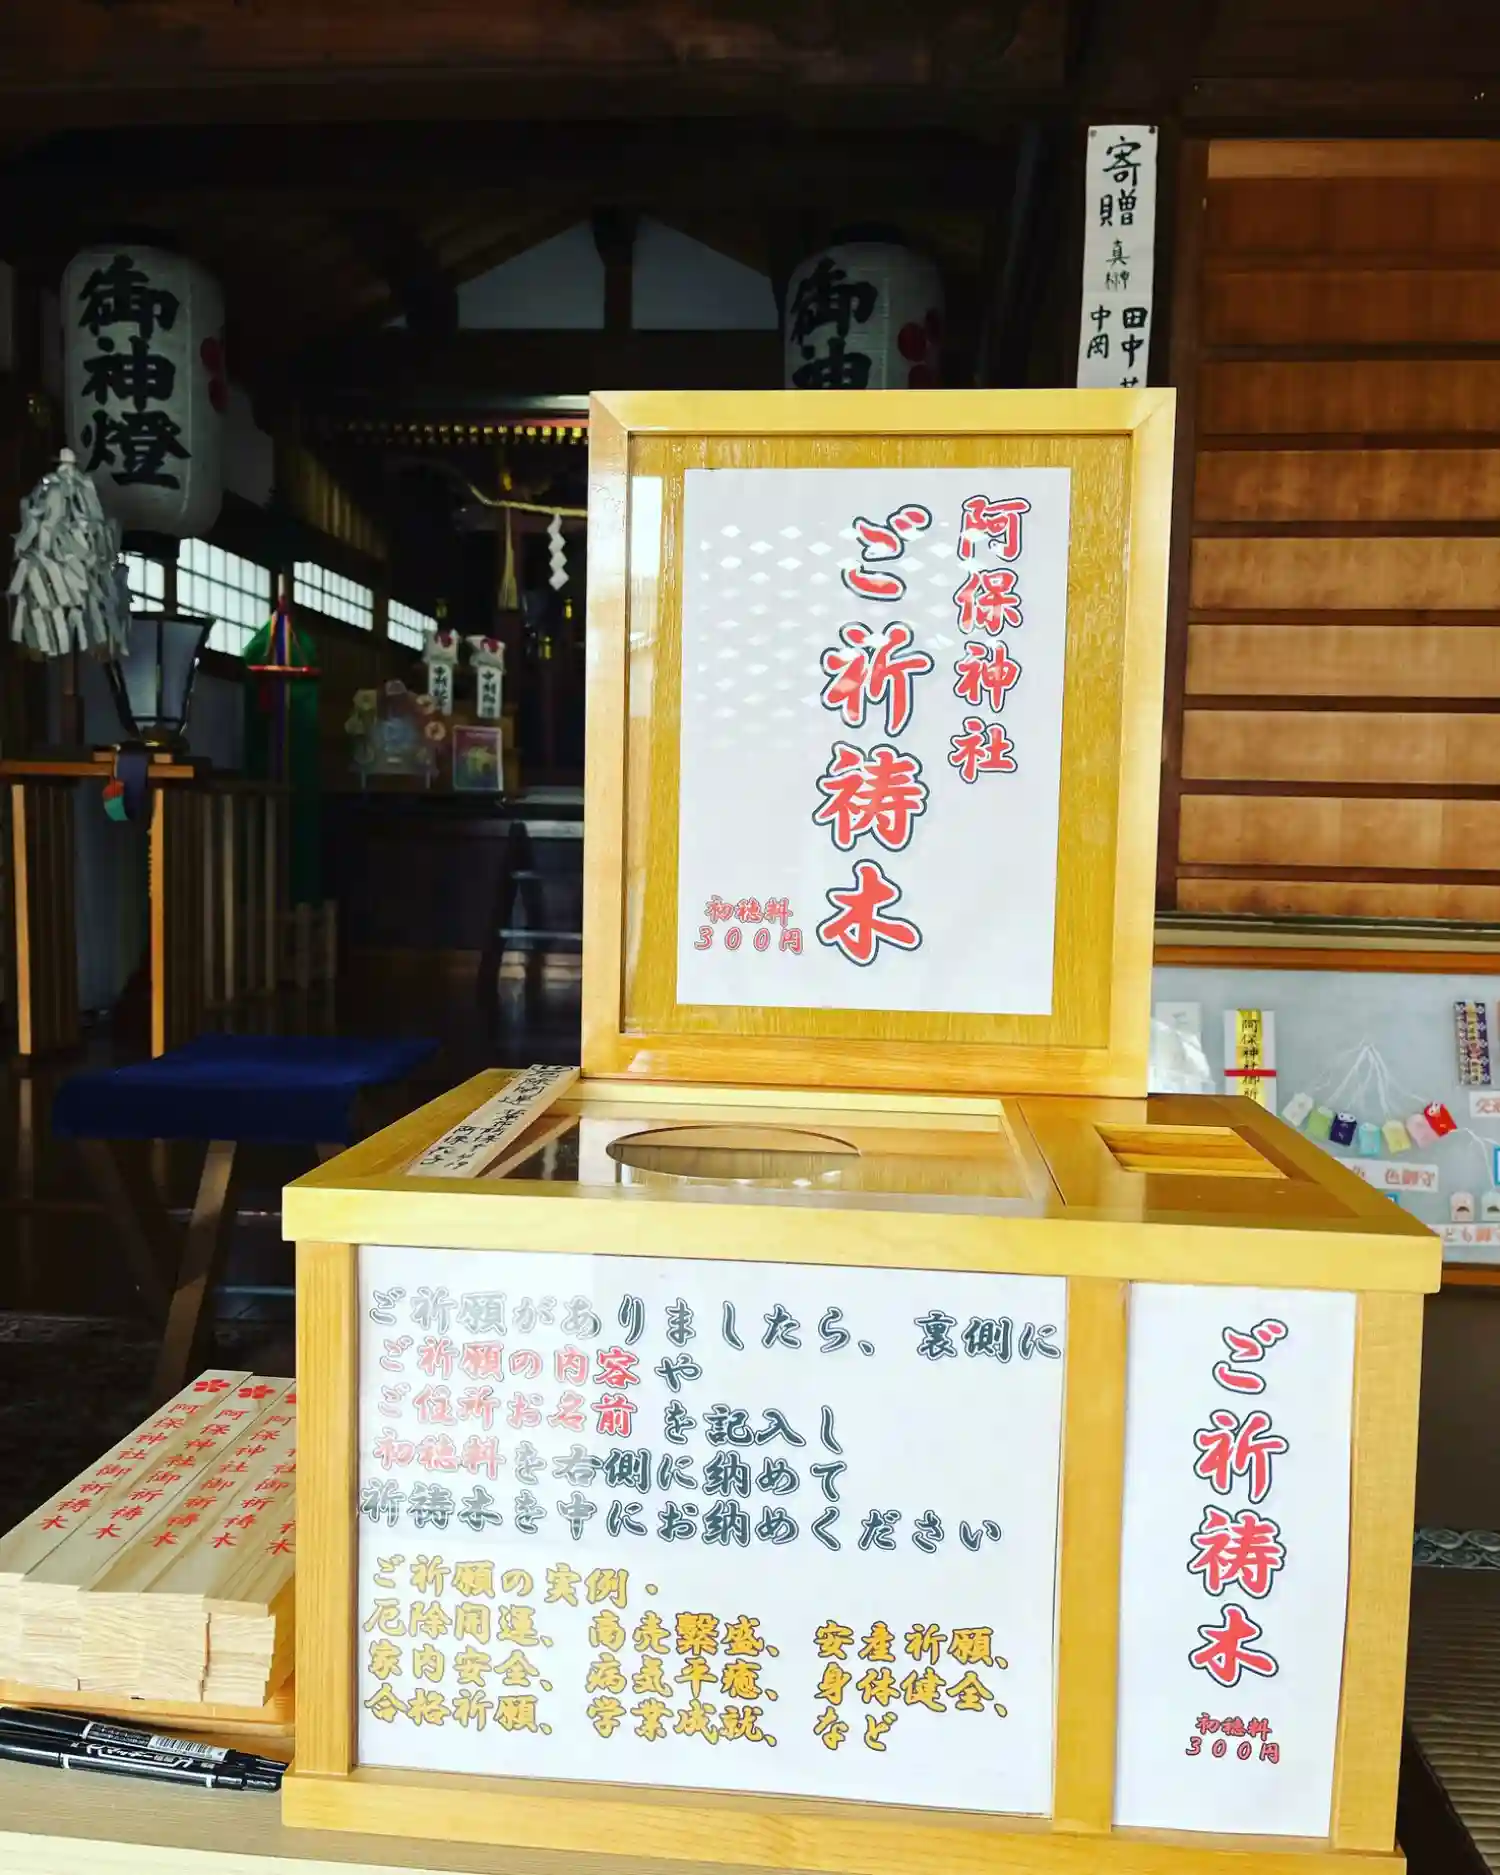 御神燈
御神
寄贈
真榊
田中
中岡
阿保神社
ご祈祷木
初穂料
３００円
ご祈願がありましたら、裏側に
ご祈願の内容や
ご住所お名前を記入し
初穂料を右側に納めて
祈祷木を中にお納めください
ご祈願の実例・
厄除開運、商売繫盛、安産祈願、
家内安全、病気平癒、身体健全、
合格祈願、学業成就、など
ご祈祷木
初穂料
３００円
阿保神社御祈祷木
阿保神社御祈祷木
阿保神社御祈祷木
阿保神社御祈
色御守